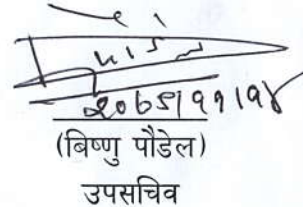 २०७९।११।१४
(बिष्णु पौडेल)
उपसचिव